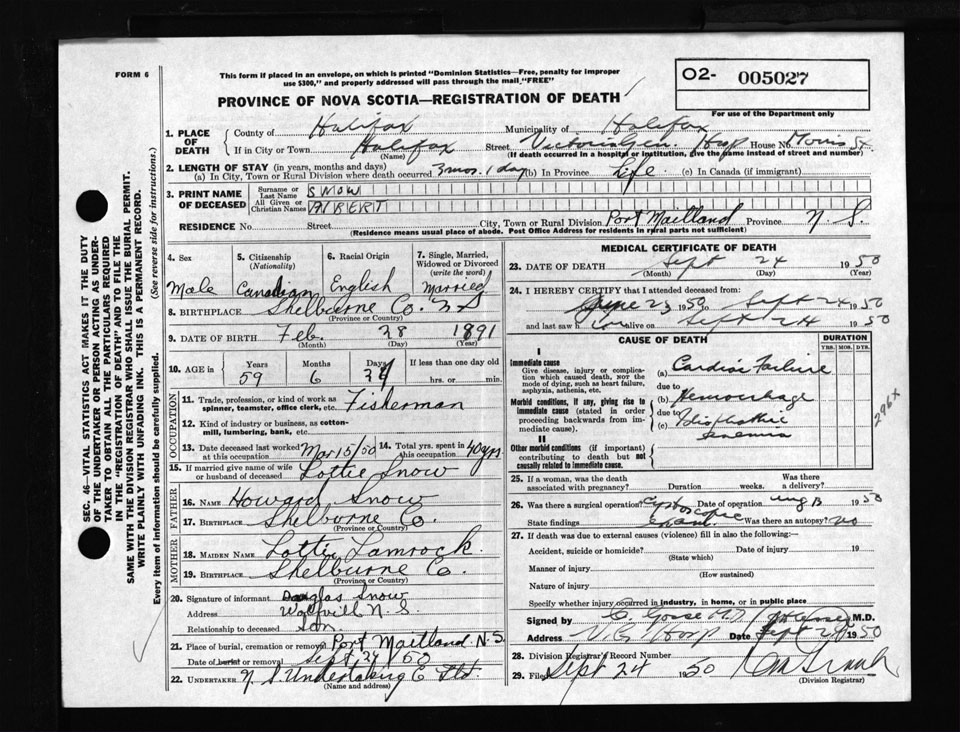 FORM 6
This form if placed in an envelope, on which is printed "Dominion Statistics—Free, penalty for improper
use $300," and properly addressed will pass through the mail "FREE"
PROVINCE OF NOVA SCOTIA—REGISTRATION OF DEATH
02- 005027
For use of the Department only
1. PLACE OF DEATH
County of Halifax Municipality of Halifax
If in City or Town Halifax Street Victoria Gen. Hosp House No. Morris St.
(Name) (If death occurred in a hospital or institution, give the name instead of street and number)
2. LENGTH OF STAY (in years, months and days)
(a) In City, Town or Rural Division where death occurred 3 mos. 1 day (b) In Province Life (c) In Canada (if immigrant)
3. PRINT NAME OF DECEASED
Surname or Last Name SNOW
All Given or Christian Names AlBERT
RESIDENCE No. Street City, Town or Rural Division Port Maitland Province N.S.
(Residence means usual place of abode. Post Office Address for residents in rural parts not sufficient)
4. Sex
Male
5. Citizenship (Nationality)
Canadian
6. Racial Origin
English
7. Single, Married, Widowed or Divorced (write the word)
Married
8. BIRTHPLACE Shelburne Co.
(Province or Country)
9. DATE OF BIRTH Feb. 28 1891
(Month) (Day) (Year)
10. AGE in Years Months Days If less than one day old
59 6 hrs. or min.
OCCUPATION
11. Trade, profession, or kind of work as spinner, teamster, office clerk, etc. Fisherman
12. Kind of industry or business, as cotton-mill, lumbering, bank, etc.
13. Date deceased last worked at this occupation Mar 15/50 14. Total yrs. spent in this occupation 40 yrs.
15. If married give name of wife or husband of deceased Lottie Snow
FATHER
16. NAME Howard Snow
17. BIRTHPLACE Shelburne Co.
(Province or Country)
MOTHER
18. MAIDEN NAME Lottie Lamrock.
19. BIRTHPLACE Shelburne Co.
(Province or Country)
20. Signature of informant Douglas Snow
Address Wolfvill N.S.
Relationship to deceased Son
21. Place of burial, cremation or removal Port Maitland N.S.
Date of burial or removal Sept 24/50
22. UNDERTAKER N.S. Undertaking C Ltd.
(Name and address)
MEDICAL CERTIFICATE OF DEATH
23. DATE OF DEATH Sept 24 1950
(Month) (Day) (Year)
24. I HEREBY CERTIFY that I attended deceased from:
June 23 1950 to Sept 24 1950
and last saw h alive on Sept 24 1950
CAUSE OF DEATH
DURATION
YRS. MOS. DYS.
I
Immediate cause
Give disease, injury or complication which caused death, not the mode of dying, such as heart failure, asphyxia, asthenia, etc.
(a) Cardiac Failure
due to
Morbid conditions, if any, giving rise to immediate cause (stated in order proceeding backwards from immediate cause).
(b) Hemorrhage
due to
(c) Idiopathic
II
Other morbid conditions (if important) contributing to death but not causally related to immediate cause.
25. If a woman, was the death associated with pregnancy? Duration weeks. Was there a delivery?
26. Was there a surgical operation? Cystoscopic Date of operation Aug 1950
State findings Was there an autopsy? no
27. If death was due to external causes (violence) fill in also the following:—
Accident, suicide or homicide? Date of injury 19
(State which)
Manner of injury
(How sustained)
Nature of injury
Specify whether injury occurred in industry, in home, or in public place
Signed by C. Gosse M.D. M.D.
Address V.G. Hosp Date Sept 24 1950
28. Division Registrar's Record Number
29. Filed Sept 24 1950
(Division Registrar)
SEC. 46—VITAL STATISTICS ACT MAKES IT THE DUTY
OF THE UNDERTAKER OR PERSON ACTING AS UNDER-
TAKER TO OBTAIN ALL THE PARTICULARS REQUIRED
IN THE "REGISTRATION OF DEATH" AND TO FILE THE
SAME WITH THE DIVISION REGISTRAR WHO SHALL ISSUE THE BURIAL PERMIT.
WRITE PLAINLY WITH UNFADING INK. THIS IS A PERMANENT RECORD.
Every item of information should be carefully supplied. (See reverse side for instructions.)